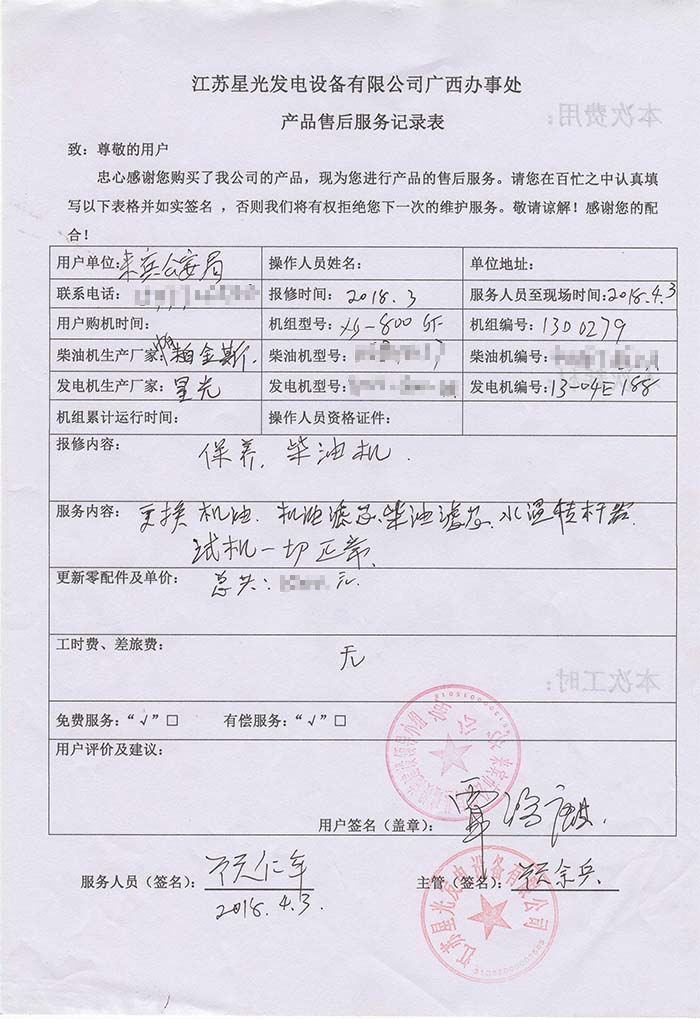 江苏星光发电设备有限公司广西办事处
产品售后服务记录表
致：尊敬的用户
忠心感谢您购买了我公司的产品，现为您进行产品的售后服务。请您在百忙之中认真填
写以下表格并如实签名，否则我们将有权拒绝您下一次的维护服务。敬请谅解！感谢您的配
合！
用户单位：来宾公安局 操作人员姓名： 单位地址：
联系电话： 报修时间：2018.3 服务人员至现场时间：2018.4.3
用户购机时间： 机组型号： 机组编号：13D0279
柴油机生产厂家：帕金斯 柴油机型号： 柴油机编号：
发电机生产厂家：星光 发电机型号： 发电机编号：13-04E188
机组累计运行时间： 操作人员资格证件：
报修内容：保养，柴油机.
服务内容：更换机油、机油滤芯、柴油滤芯、水温
试机一切正常
更新零配件及单价：总共： 元
工时费、差旅费：无
免费服务：“√”□ 有偿服务：“√”□
用户评价及建议：
用户签名（盖章）：
服务人员（签名）： 主管（签名）：
2018.4.3
江苏星光发电设备有限公司
本次费用：
本次工时：